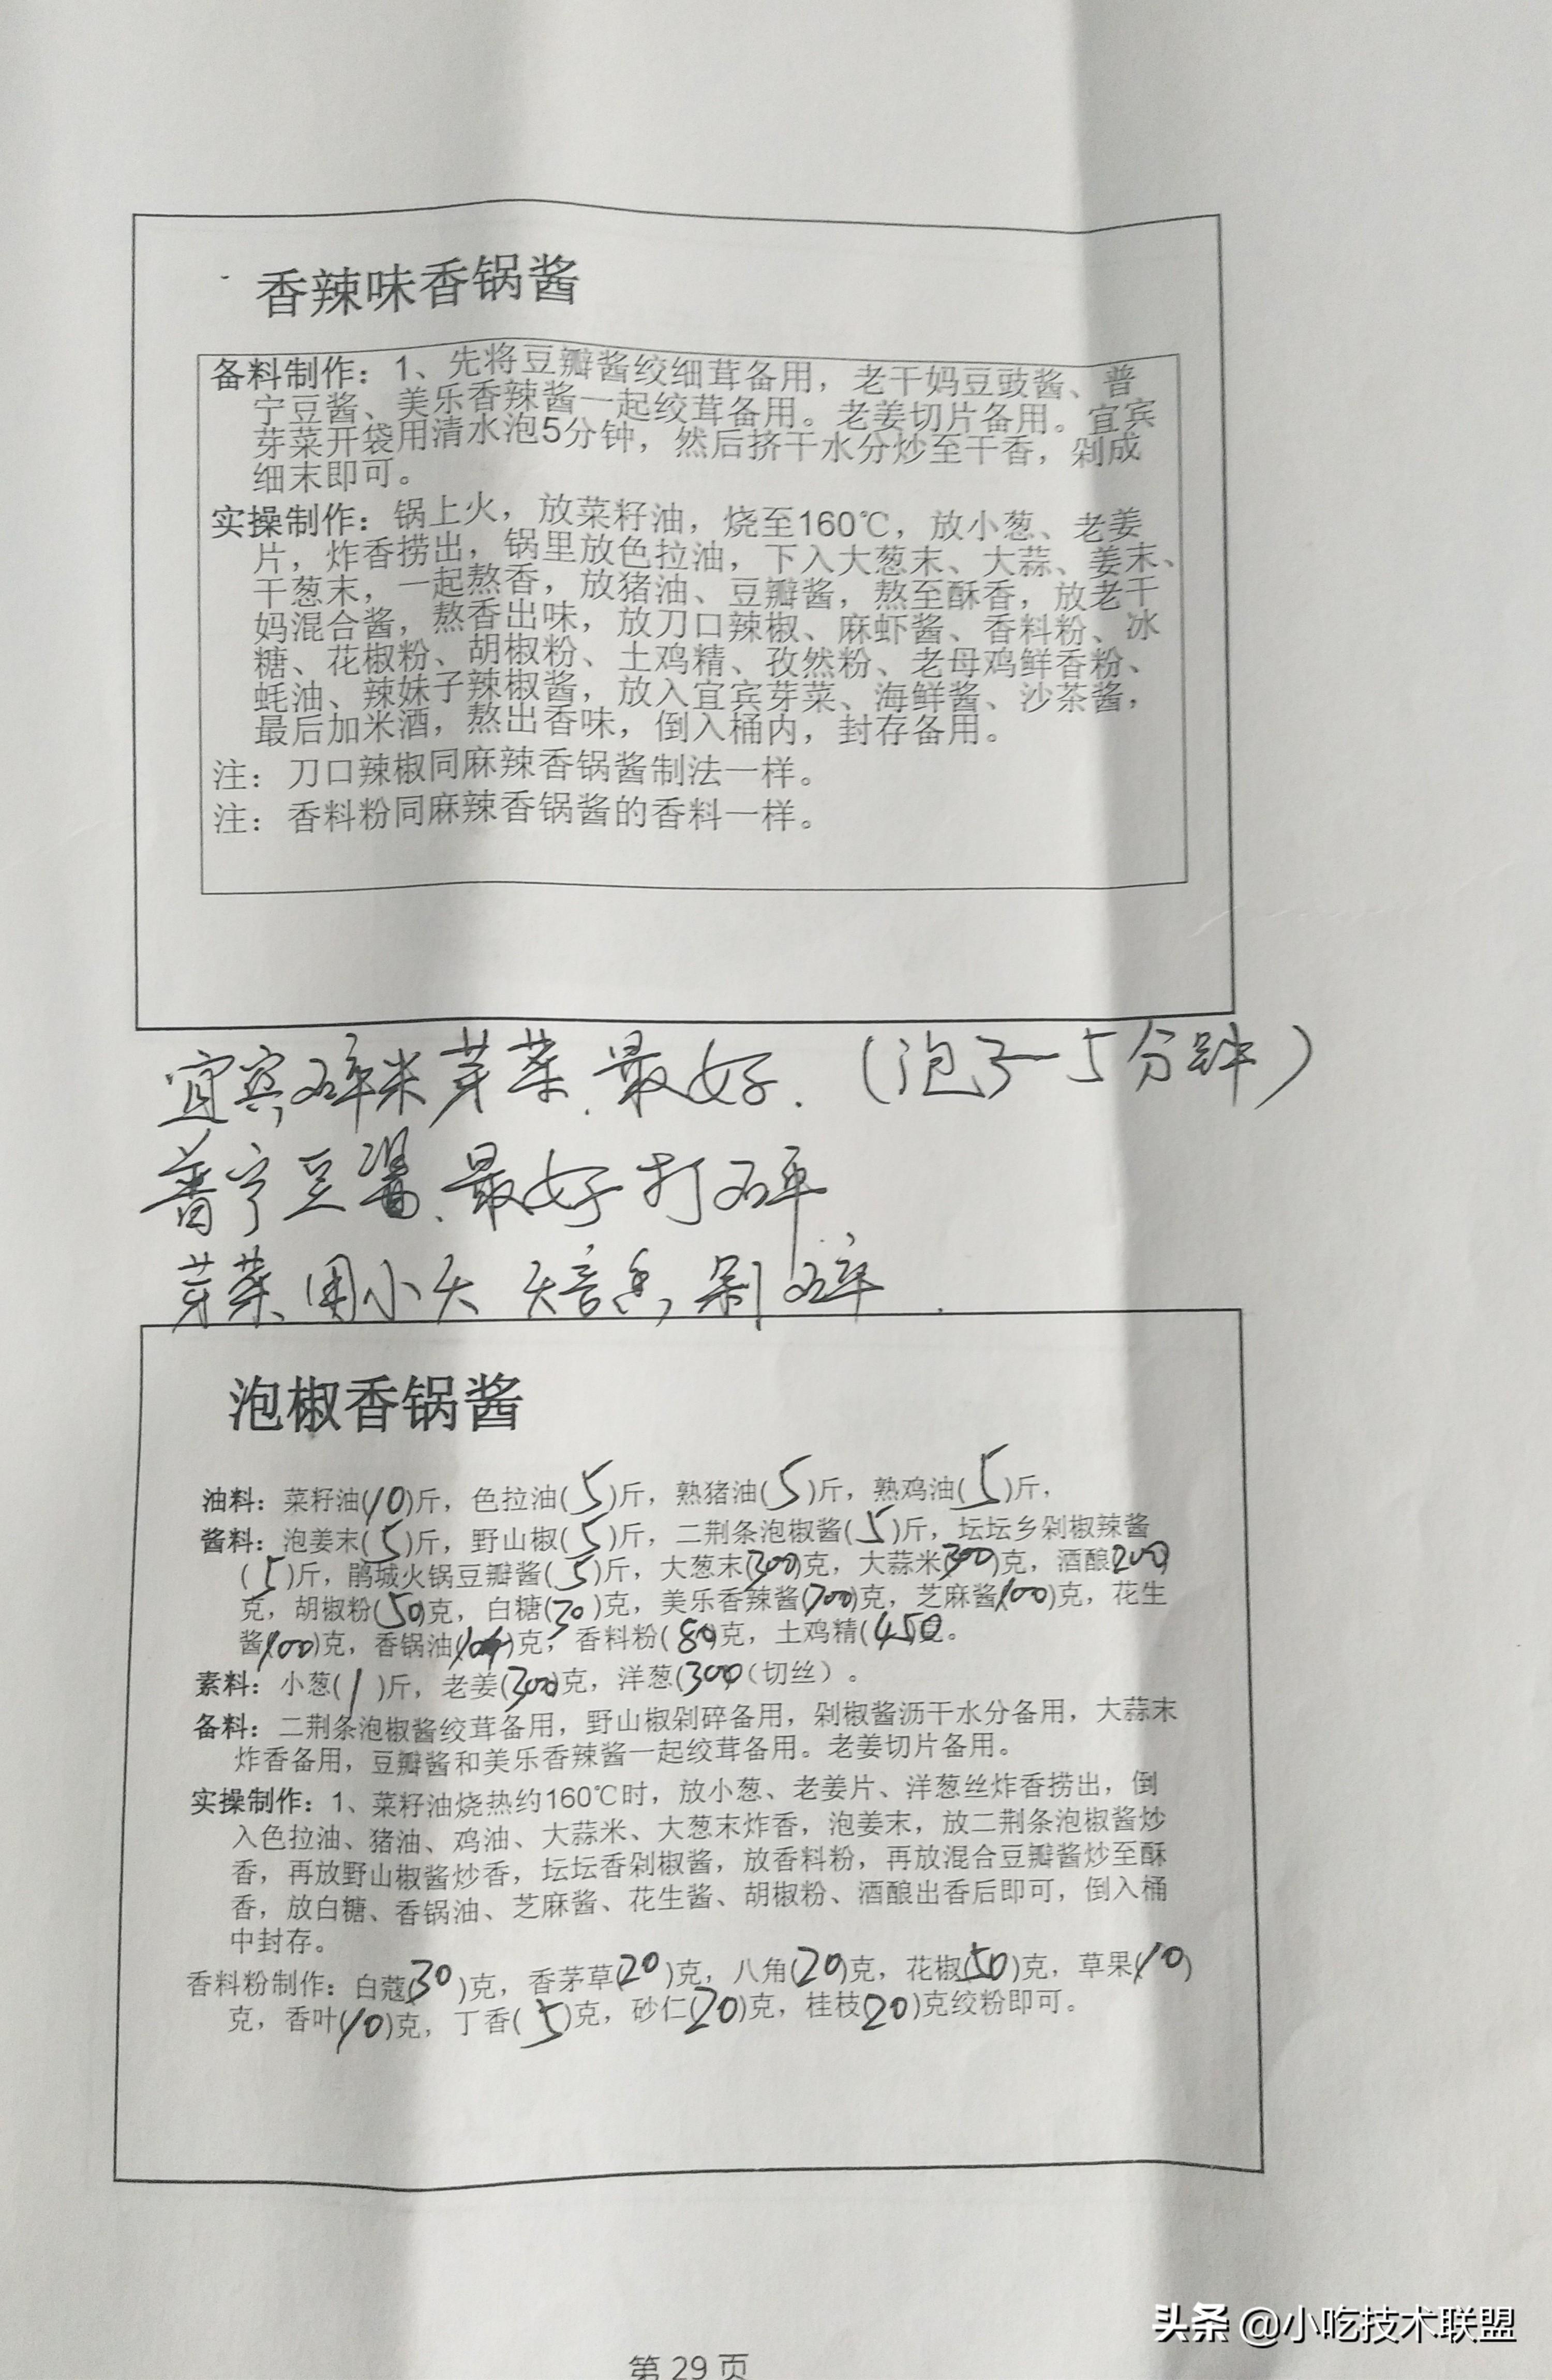 香辣味香锅酱
备料制作：1、先将豆瓣酱绞细茸备用，老干妈豆豉酱、普
宁豆酱、美乐香辣酱一起绞茸备用。老姜切片备用。宜宾
芽菜开袋用清水泡5分钟，然后挤干水分炒至干香，剁成
细末即可。
实操制作：锅上火，放菜籽油，烧至160℃，放小葱、老姜
片，炸香捞出，锅里放色拉油，下入大葱末、大蒜、姜末、
干葱末，一起熬香，放猪油、豆瓣酱，熬至酥香，放老干
妈混合酱，熬香出味，放刀口辣椒、麻虾酱、香料粉、冰
糖、花椒粉、胡椒粉、土鸡精、孜然粉、老母鸡鲜香粉、
蚝油、辣妹子辣椒酱，放入宜宾芽菜、海鲜酱、沙茶酱，
最后加米酒，熬出香味，倒入桶内，封存备用。
注：刀口辣椒同麻辣香锅酱制法一样。
注：香料粉同麻辣香锅酱的香料一样。
宜宾碎米芽菜.最好.（泡3-5分钟）
普宁豆酱、最好打碎
芽菜用小火 焙香，剁碎.
泡椒香锅酱
油料：菜籽油(10)斤，色拉油(5)斤，熟猪油(5)斤，熟鸡油(5)斤，
酱料：泡姜末(5)斤，野山椒(5)斤，二荆条泡椒酱(5)斤，坛坛乡剁椒辣酱
(5)斤，鹃城火锅豆瓣酱(5)斤，大葱末(300)克，大蒜米(300)克，酒酿200
克，胡椒粉(50)克，白糖(30)克，美乐香辣酱(700)克，芝麻酱(100)克，花生
酱(100)克，香锅油()克，香料粉(80)克，土鸡精(450克。
素料：小葱(1)斤，老姜(300)克，洋葱(300（切丝）。
备料：二荆条泡椒酱绞茸备用，野山椒剁碎备用，剁椒酱沥干水分备用，大蒜末
炸香备用，豆瓣酱和美乐香辣酱一起绞茸备用。老姜切片备用。
实操制作：1、菜籽油烧热约160℃时，放小葱、老姜片、洋葱丝炸香捞出，倒
入色拉油、猪油、鸡油、大蒜米、大葱末炸香，泡姜末，放二荆条泡椒酱炒
香，再放野山椒酱炒香，坛坛香剁椒酱，放香料粉，再放混合豆瓣酱炒至酥
香，放白糖、香锅油、芝麻酱、花生酱、胡椒粉、酒酿出香后即可，倒入桶
中封存。
香料粉制作：白蔻(30)克，香茅草(20)克，八角(20)克，花椒(50)克，草果(10)
克，香叶(10)克，丁香(5)克，砂仁(20)克，桂枝20)克绞粉即可。
第 29 页
头条 @小吃技术联盟